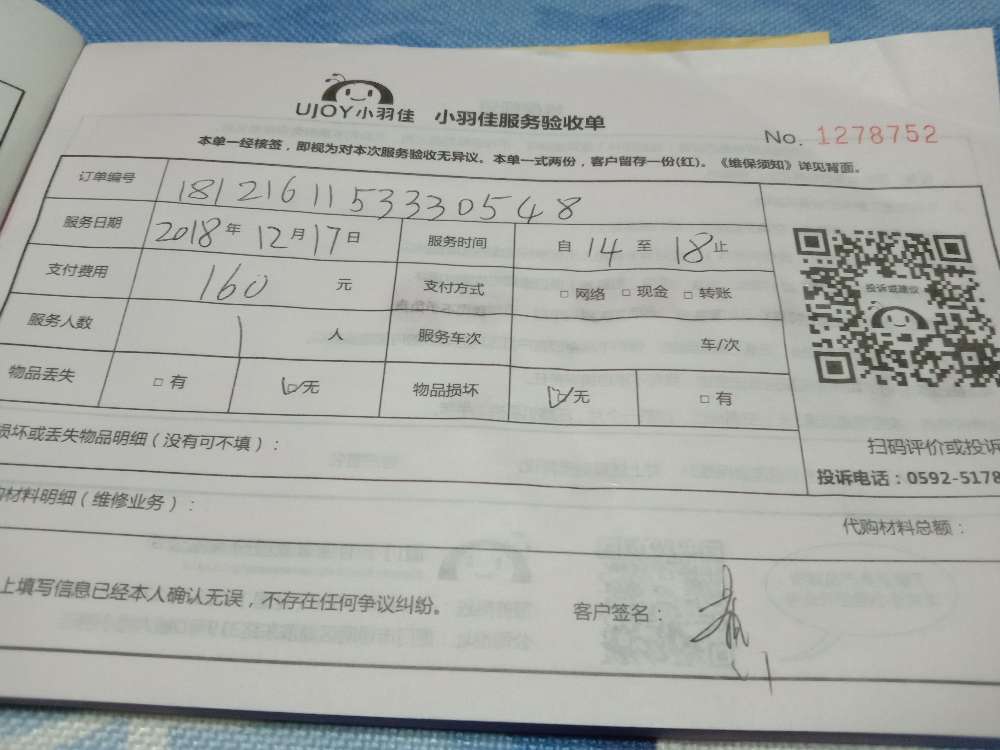 UJOY小羽佳 小羽佳服务验收单
No. 1278752
本单一经核签，即视为对本次服务验收无异议。本单一式两份，客户留存一份(红)。《维保须知》详见背面。
订单编号 1812161153330548
服务日期 2018年12月17日 服务时间 自14至18止
支付费用 160 元 支付方式 □ 网络 □ 现金 □ 转账
投诉或建议
服务人数 1 人 服务车次 车/次
物品丢失 □ 有 ☑无 物品损坏 ☑无 □ 有
损坏或丢失物品明细（没有可不填）：
扫码评价或投诉
投诉电话：0592-5178
购材料明细（维修业务）：
代购材料总额：
上填写信息已经本人确认无误，不存在任何争议纠纷。 客户签名：